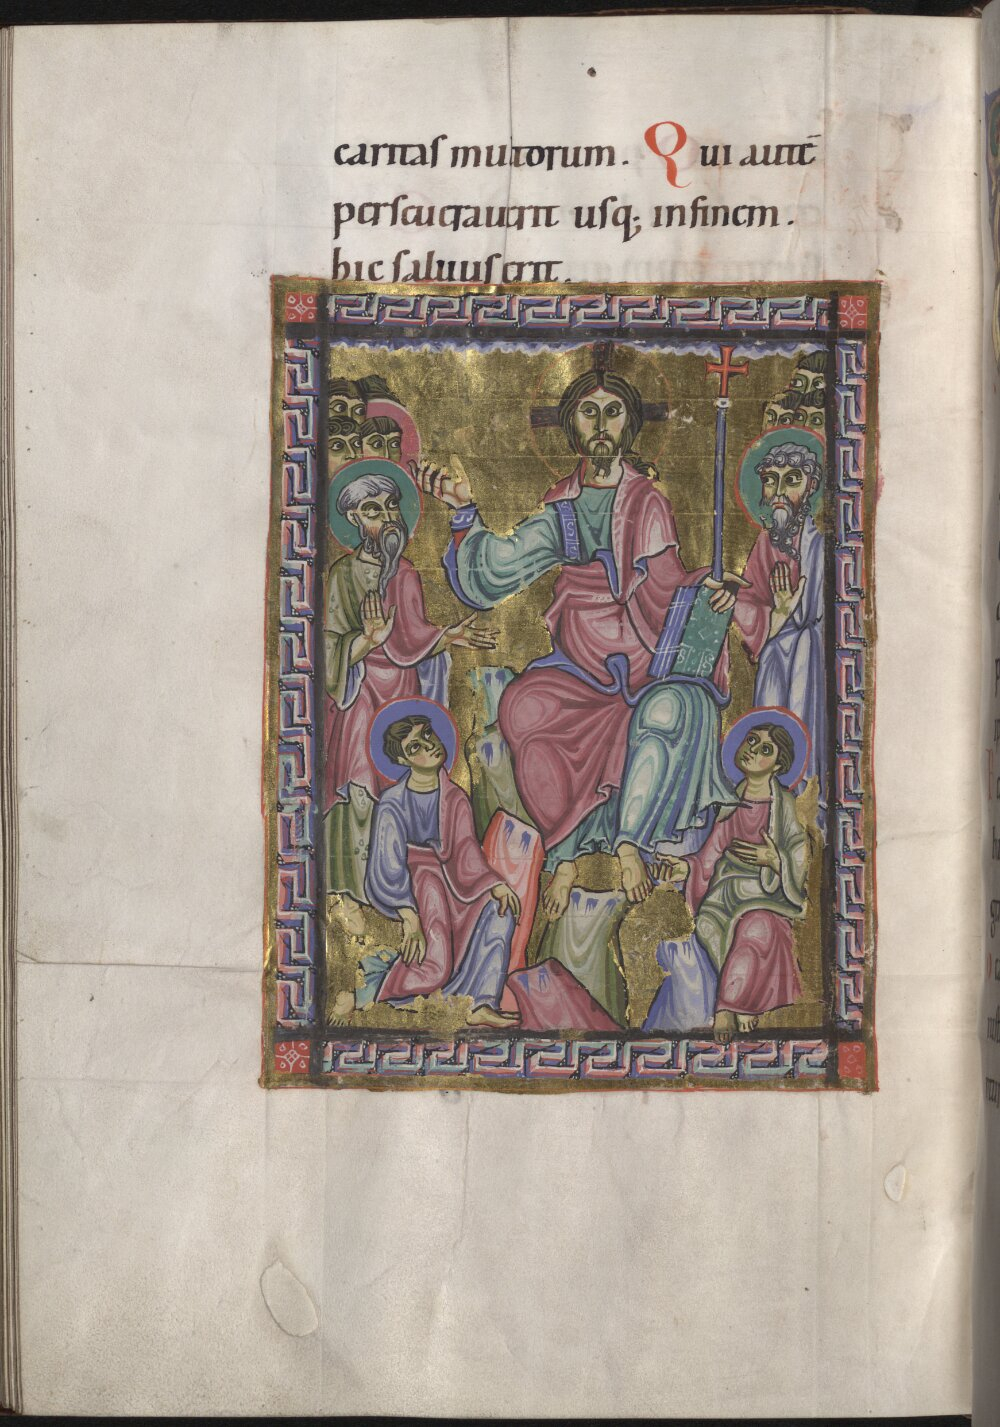 caritas mutorum. Qui autē
perseueraverit usq; in finem.
hic saluus erit.